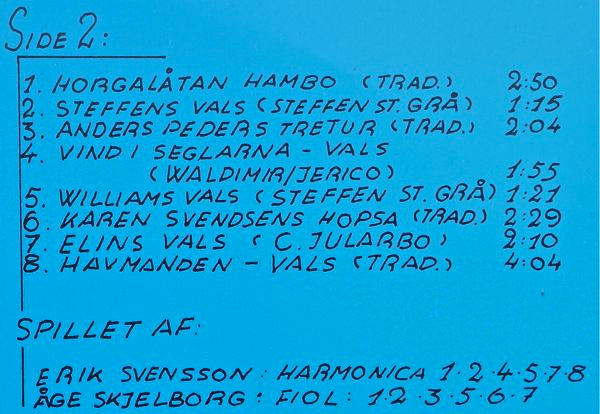 SIDE 2:
1. HORGALÅTAN HAMBO (TRAD.) 2:50
2. STEFFENS VALS (STEFFEN ST. GRÅ) 1:15
3. ANDERS PEDERS TRETUR (TRAD.) 2:04
4. VIND I SEGLARNA - VALS
(WALDIMIR/JERICO) 1:55
5. WILLIAMS VALS (STEFFEN ST. GRÅ) 1:21
6. KAREN SVENDSENS HOPSA (TRAD.) 2:29
7. ELINS VALS (C. JULARBO) 2:10
8. HAVMANDEN - VALS (TRAD.) 4:04
SPILLET AF:
ERIK SVENSSON: HARMONICA 1·2·4·5·7·8
ÅGE SKJELBORG: FIOL: 1·2·3·5·6·7